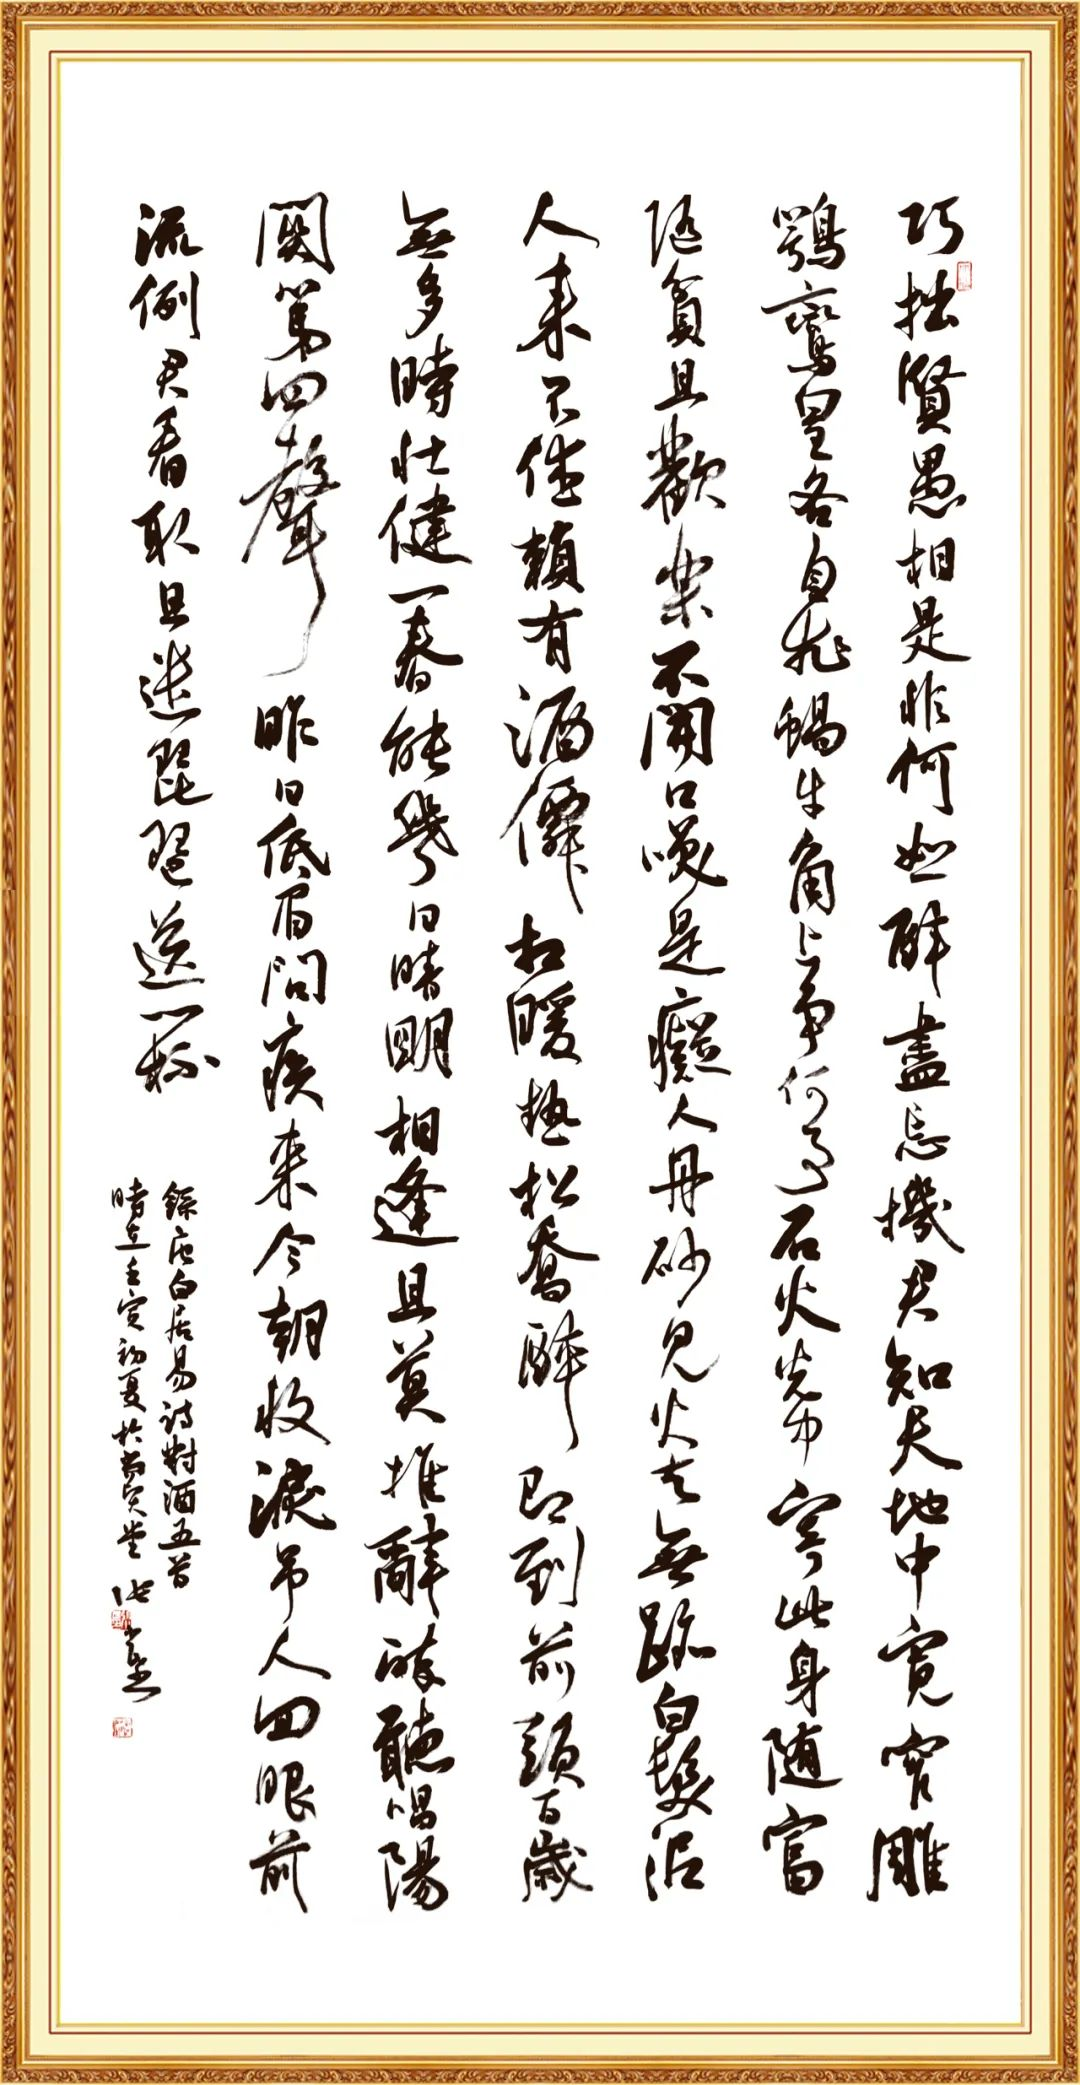 巧拙賢愚相是非何如一醉盡忘機君知天地中寬窄雕
鶚鸞皇各自飛蝸牛角上爭何事石火光中寄此身随富
随貧且歡樂不開口笑是癡人丹砂見火去無跡白髮泥
人来不休賴有酒僊相暖熱松喬醉即到前頭百歲
無多時壯健一春能幾日晴明相逢且莫推辭醉聽唱陽
關第四聲昨日低眉問疾来今朝收淚吊人回眼前
流例君看取且遣琵琶送一杯
錄唐白居易詩對酒五首
時在壬寅初夏於尚賢堂